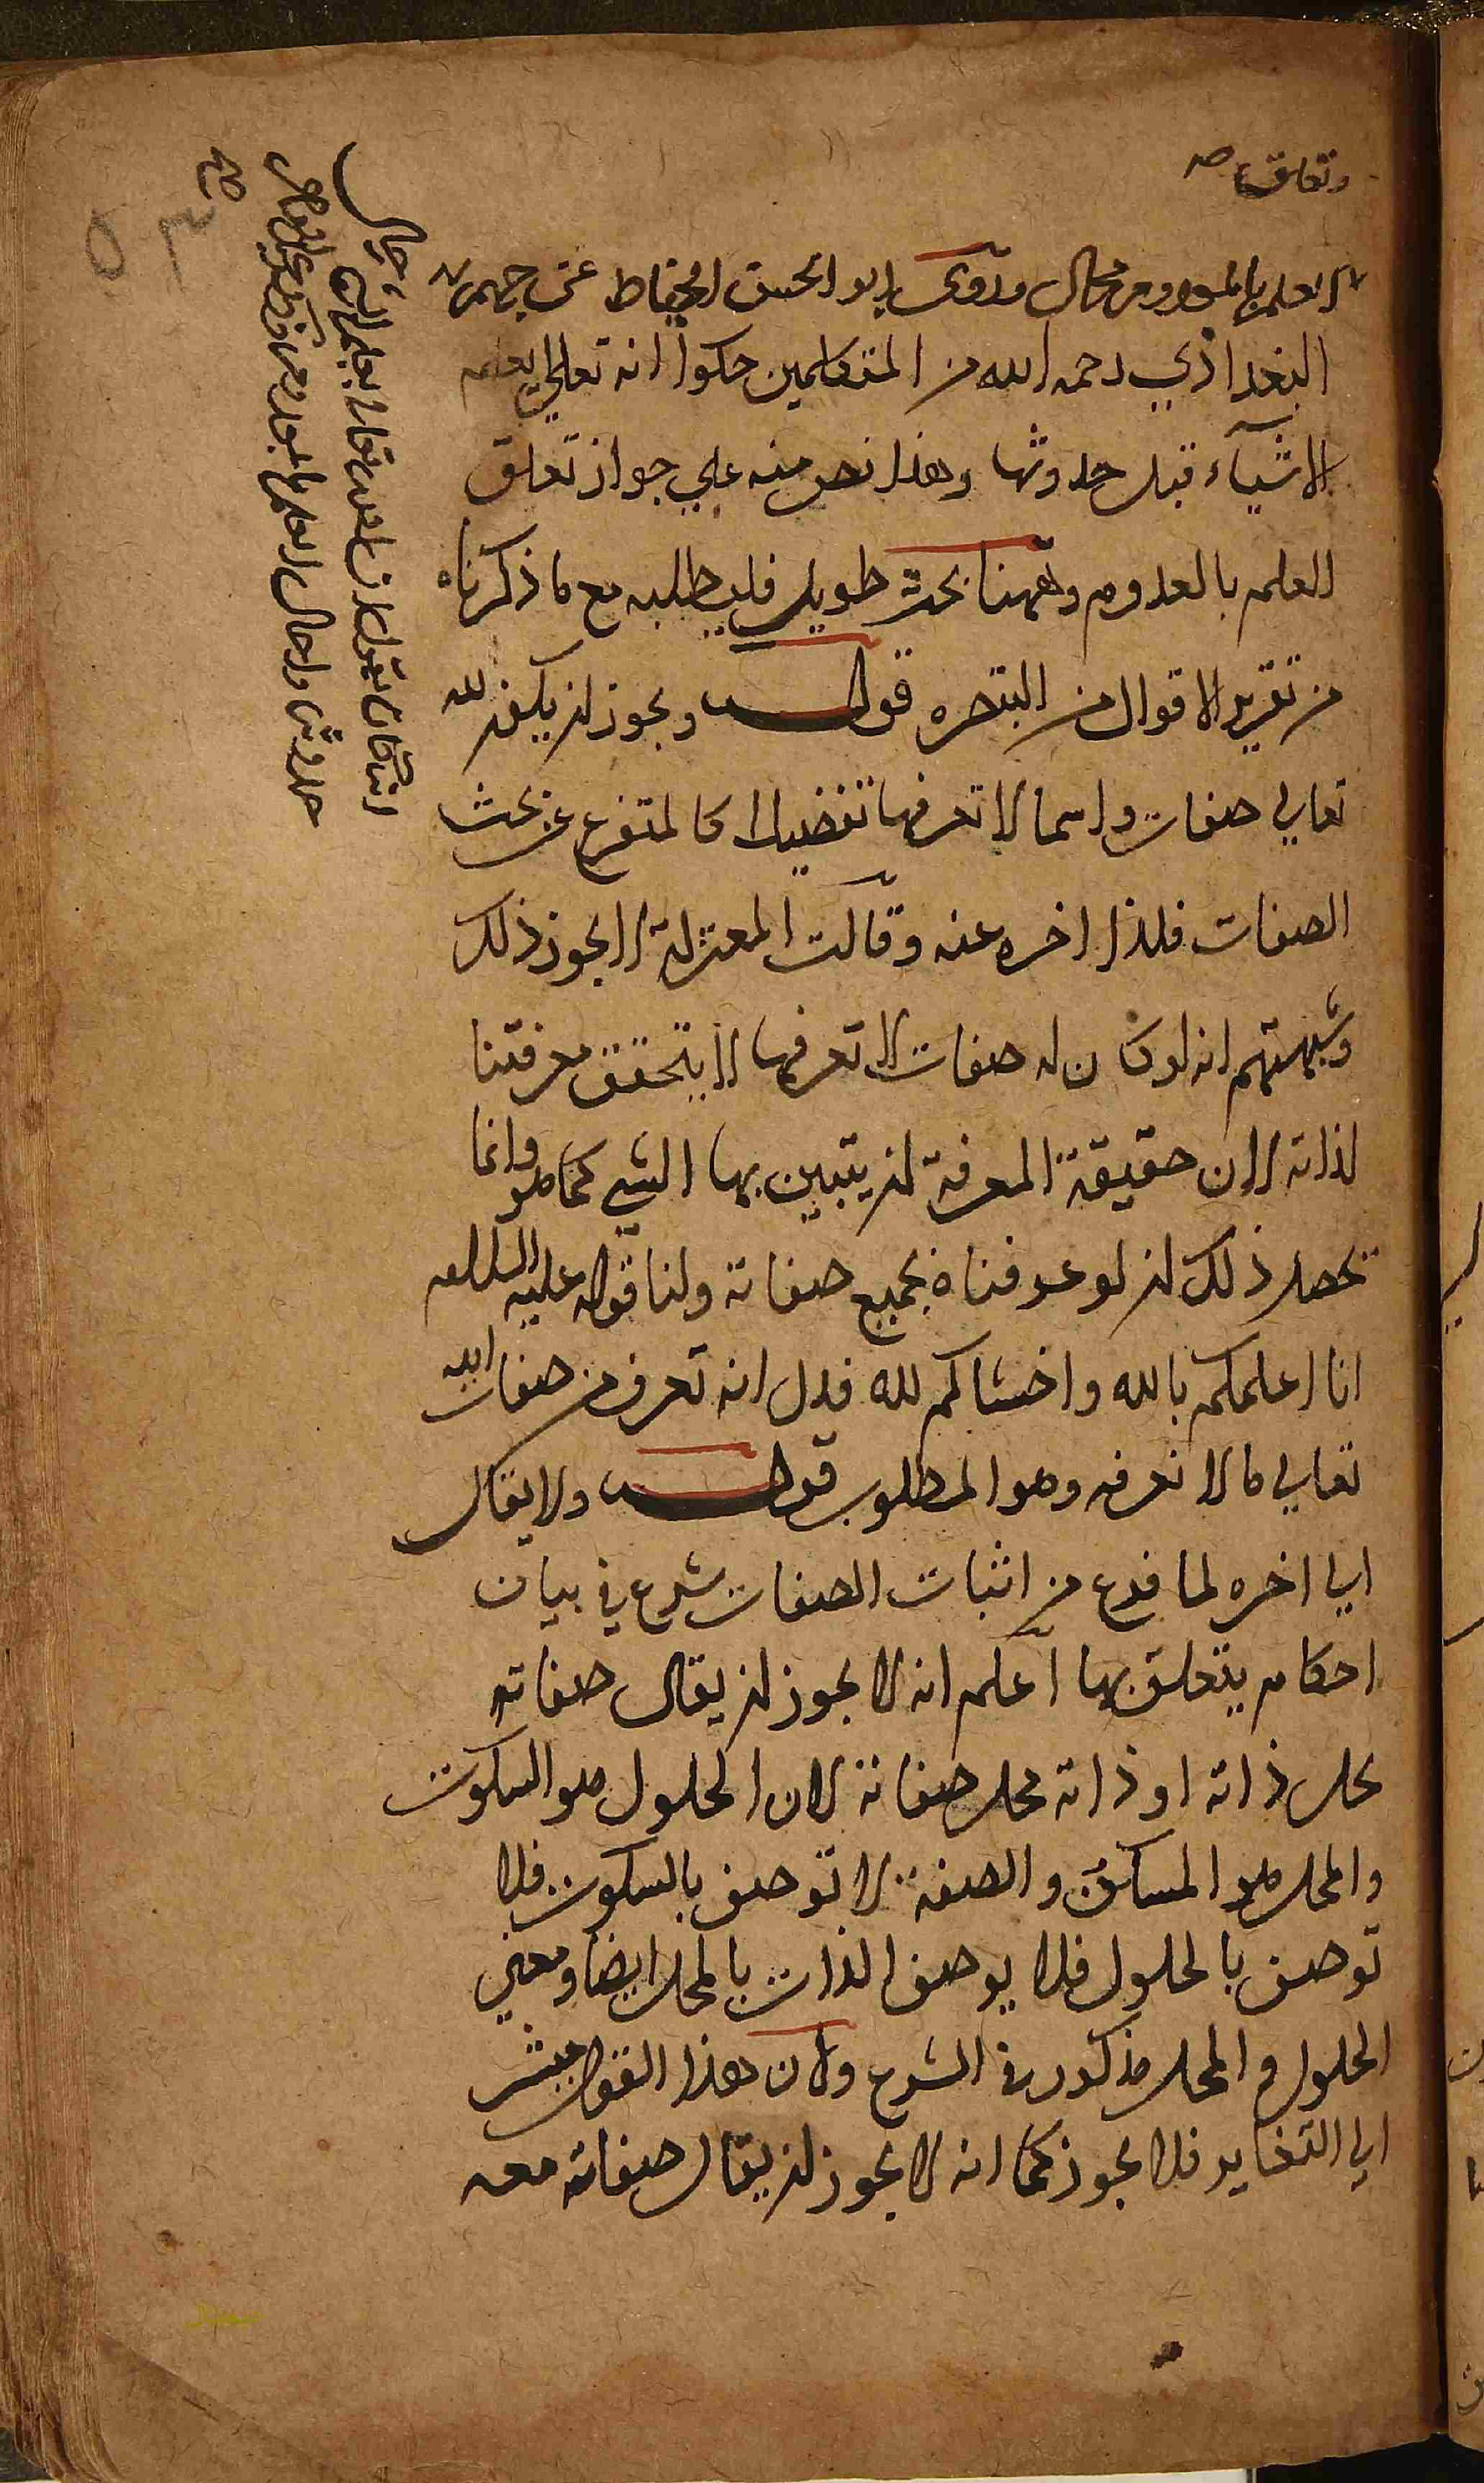 وتعلق صح
العلم بالمعدوم محال وروى ابو الحسن الخياط عن جهم
البغداذي رحمه الله من المتكلمين حكوا انه تعالي يعلم
الاشيآء قبل حدوثها وهذا نص منه علي جواز تعلق
العلم بالمعدوم وههنا بحث طويل فليطلبه مع ما ذكرناه
من تقرير الاقوال من التبصره قولـــه ويجوز ان يكون لله
تعالي صفات واسما لا تعرفها تفضيلا كالمتفرع عن بحث
الصفات فلذا اخره عنه وقالت المعتزلة لا يجوز ذلك
وشبهتهم انه لو كان له صفات لا تعرفها لا يتحقق معرفتنا
لذاته لان حقيقة المعرفة ان يتبين بها الشي كما هو وانما
يحصل ذلك ان لو عرفناه بجميع صفاته ولنا قوله عليه السلام
انا اعلمكم بالله واخشاكم لله فدل انه تعرف من صفات الله
تعالي ما لا نعرفه وهو المطلوب قولـــه ولا يقال
الي اخره لما فرع من اثبات الصفات شرع في بيان
احكام يتعلق بها اعلم انه لا يجوز ان يقال صفاته
يحل ذاته او ذاته محل صفاته لان الحلول هو السكون
والمحل هو المساكن والصفة لا توصف بالسكون فلا
توصف بالحلول فلا يوصف الذات بالمحل ايضا ومعني
الحلول والمحل مذكور في الشرع ولان هذا القول يشر
الي التغاير فلا يجوز كما انه لا يجوز ان يقال صفاته معه
صح
٥٣